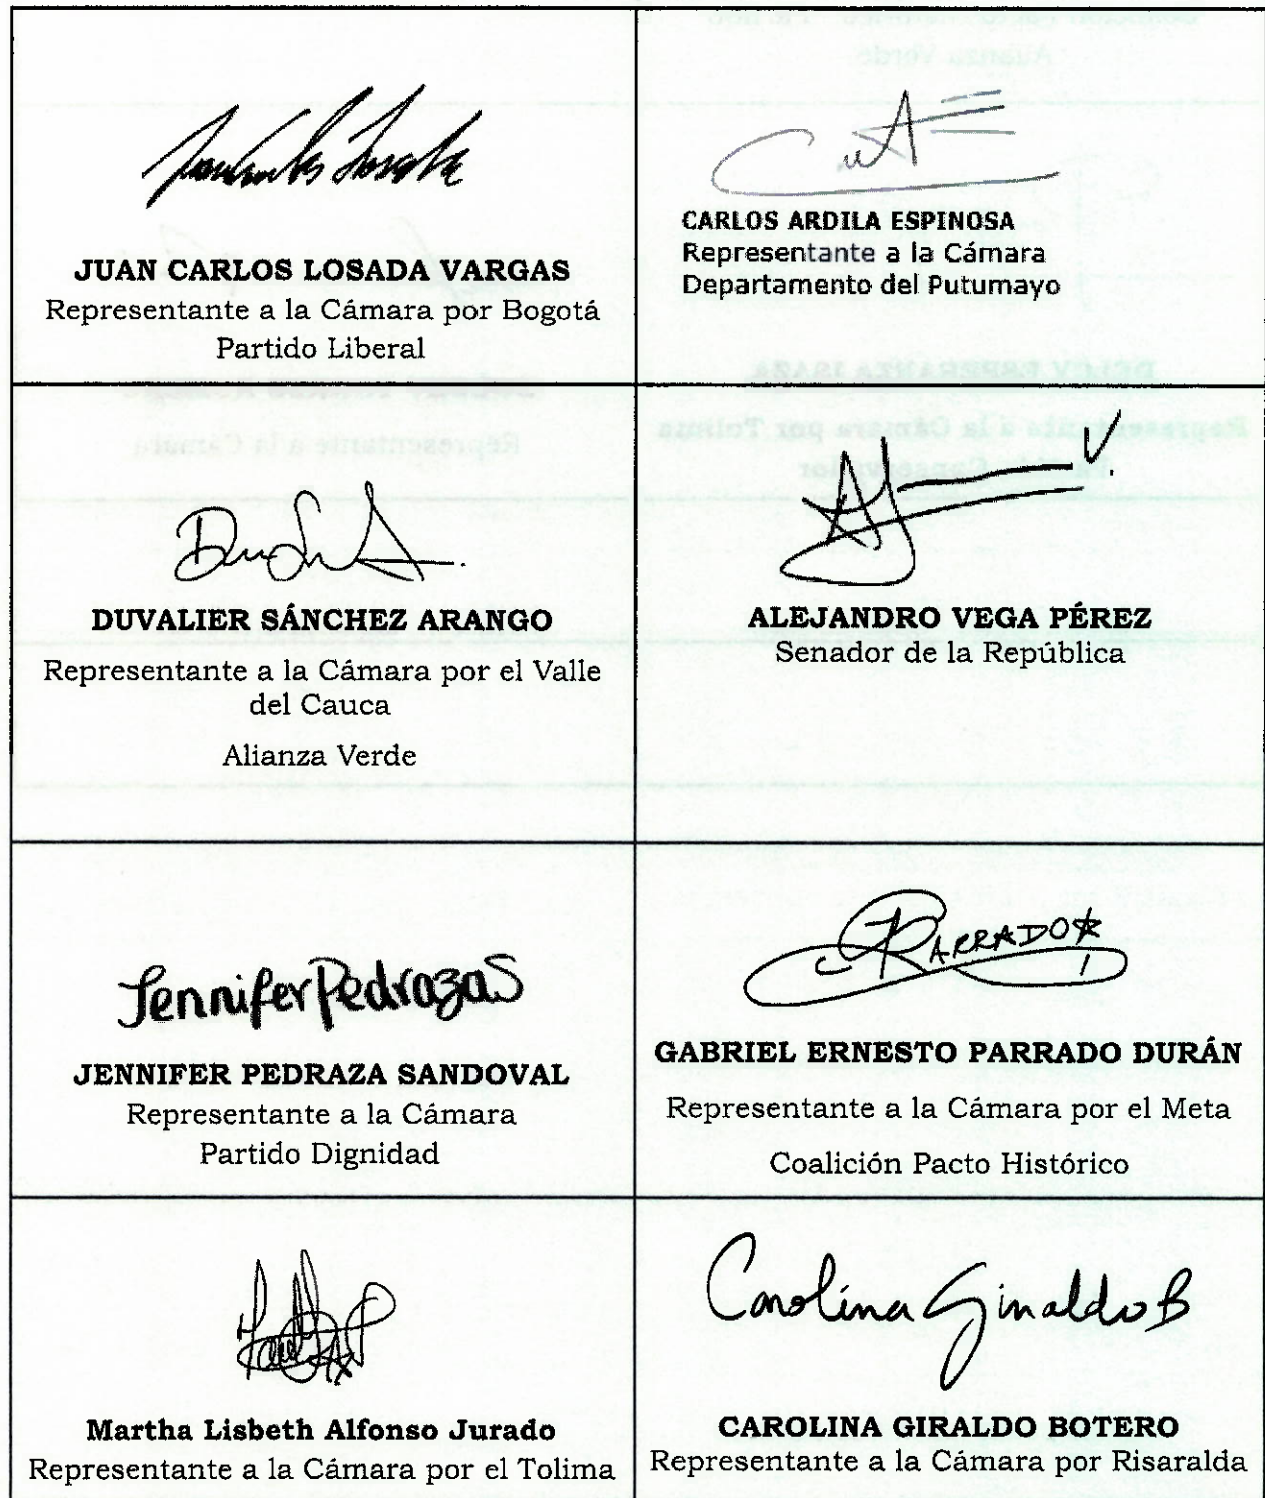 Juan Carlos Losada
JUAN CARLOS LOSADA VARGAS
Representante a la Cámara por Bogotá
Partido Liberal
CARLOS ARDILA ESPINOSA
Representante a la Cámara
Departamento del Putumayo
DUVALIER SÁNCHEZ ARANGO
Representante a la Cámara por el Valle
del Cauca
Alianza Verde
ALEJANDRO VEGA PÉREZ
Senador de la República
Jennifer Pedraza S
JENNIFER PEDRAZA SANDOVAL
Representante a la Cámara
Partido Dignidad
PARRADO
GABRIEL ERNESTO PARRADO DURÁN
Representante a la Cámara por el Meta
Coalición Pacto Histórico
Martha Lisbeth Alfonso Jurado
Representante a la Cámara por el Tolima
Carolina Giraldo B
CAROLINA GIRALDO BOTERO
Representante a la Cámara por Risaralda